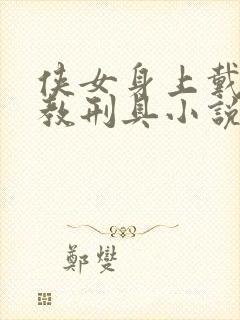 侠女身上戴
教刑具小說
鄭燮